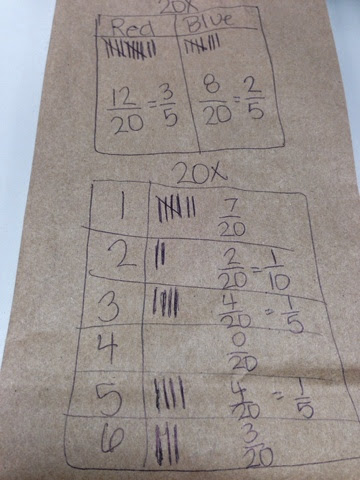 20X
Red Blue
12/20 = 3/5 8/20 = 2/5
20X
1 7/20
2 2/20 = 1/10
3 4/20 = 1/5
4 0/20
5 4/20 = 1/5
6 3/20